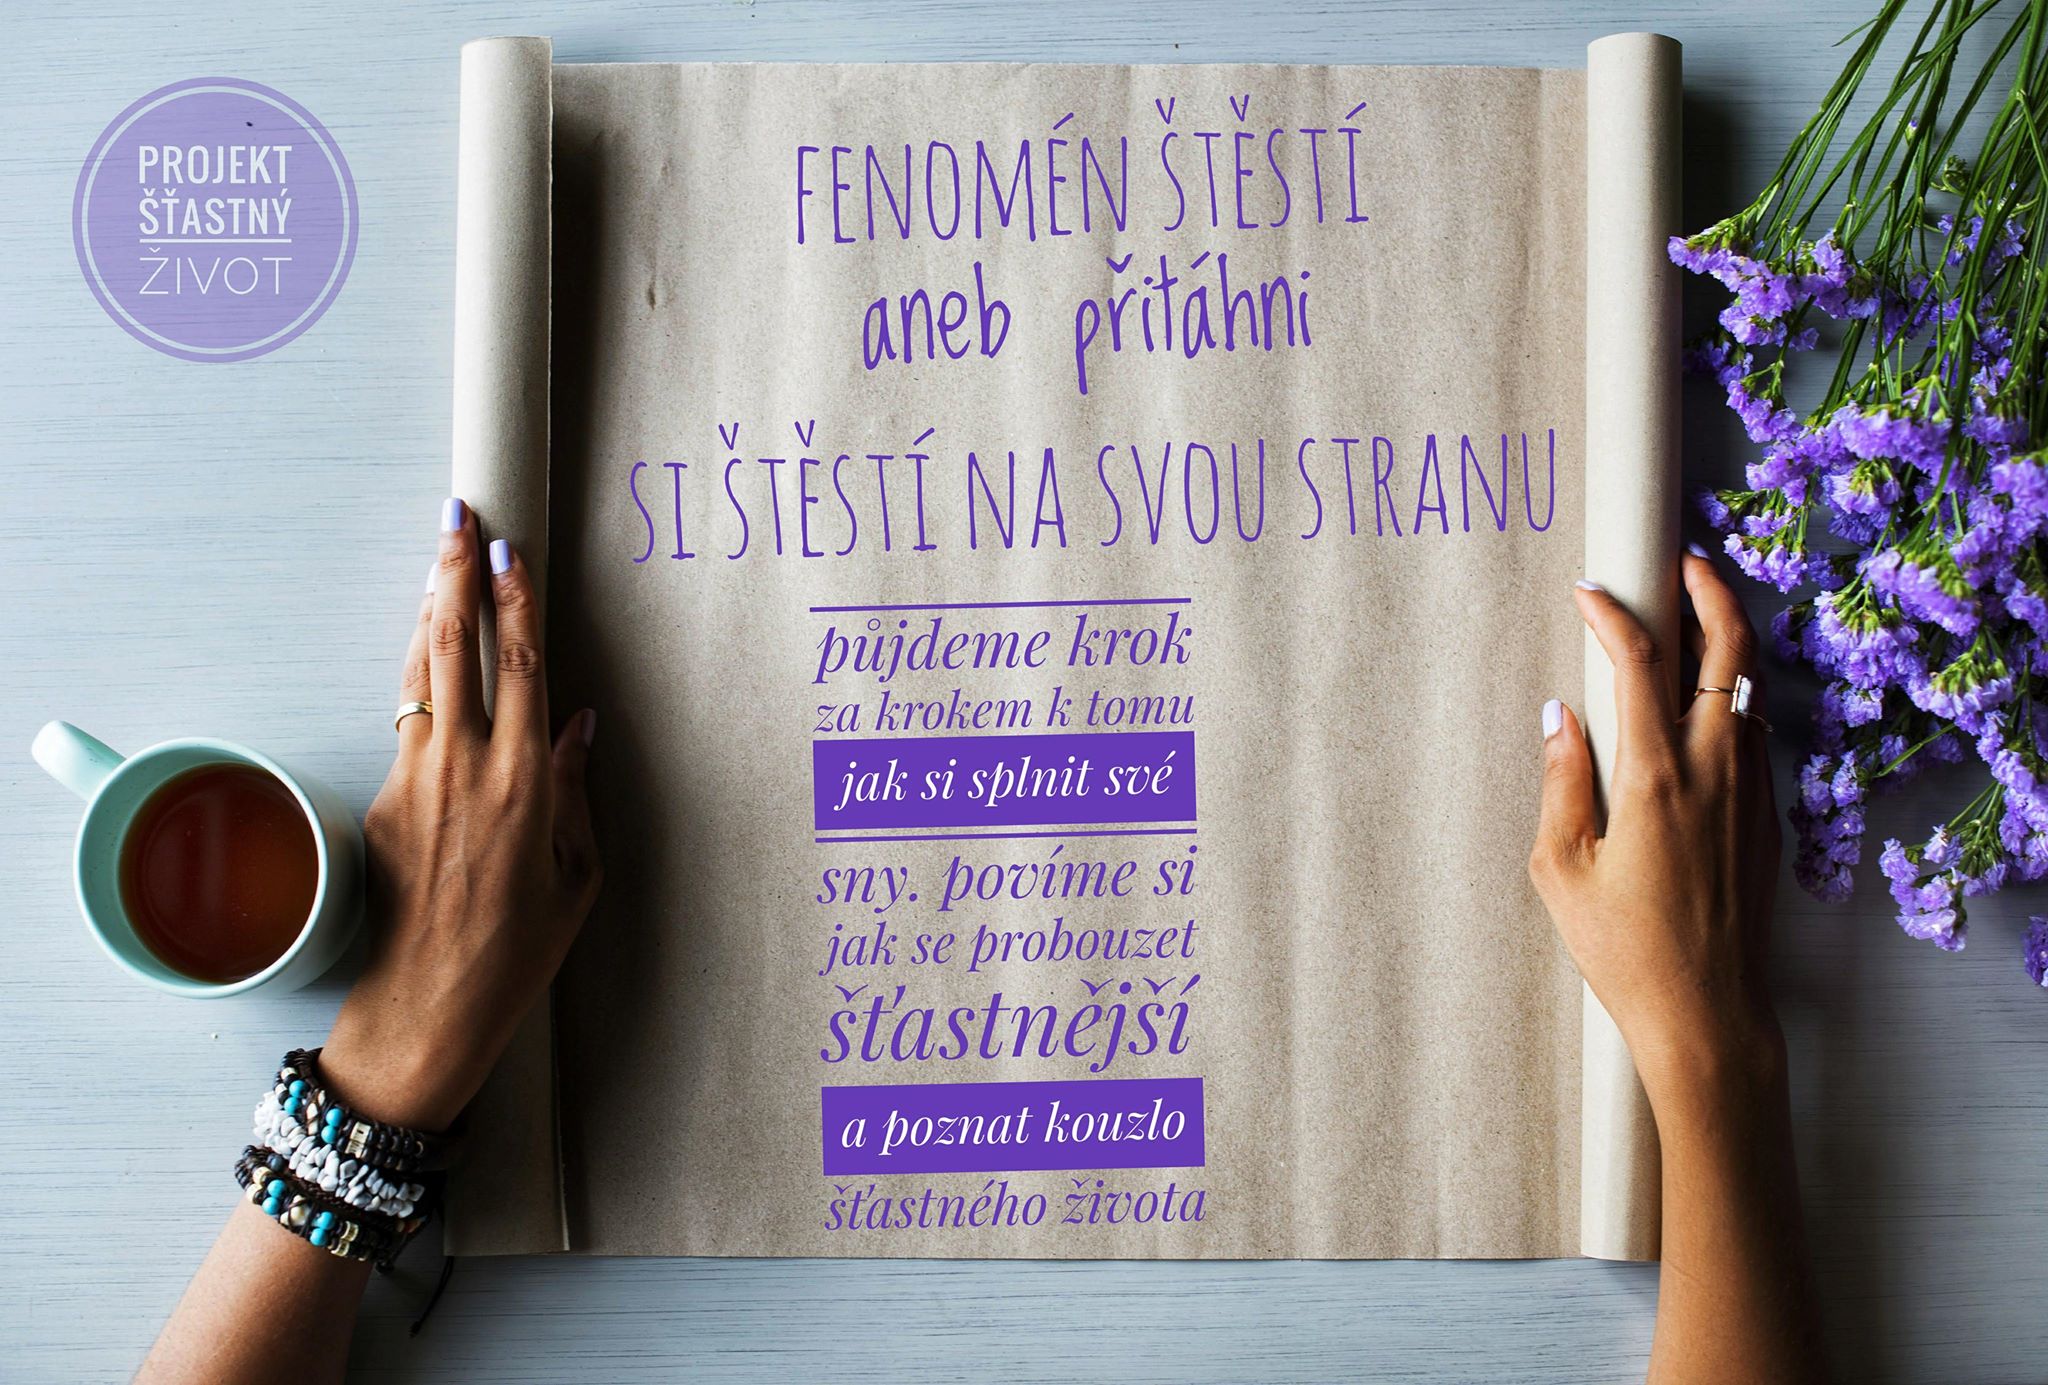 PROJEKT
ŠŤASTNÝ
ŽIVOT
FENOMÉN ŠTĚSTÍ
aneb přitáhni
SI ŠTĚSTÍ NA SVOU STRANU
půjdeme krok
za krokem k tomu
jak si splnit své
sny. povíme si
jak se probouzet
šťastnější
a poznat kouzlo
šťastného života